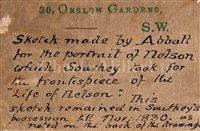 30, ONSLOW GARDENS,
S.W.
Sketch made by Abbott
for the portrait of Nelson
which Southey took for
the frontispiece of the
"Life of Nelson". This
sketch remained in Southey's
possession till Nov: 1830. as
noted on the back of the drawing.